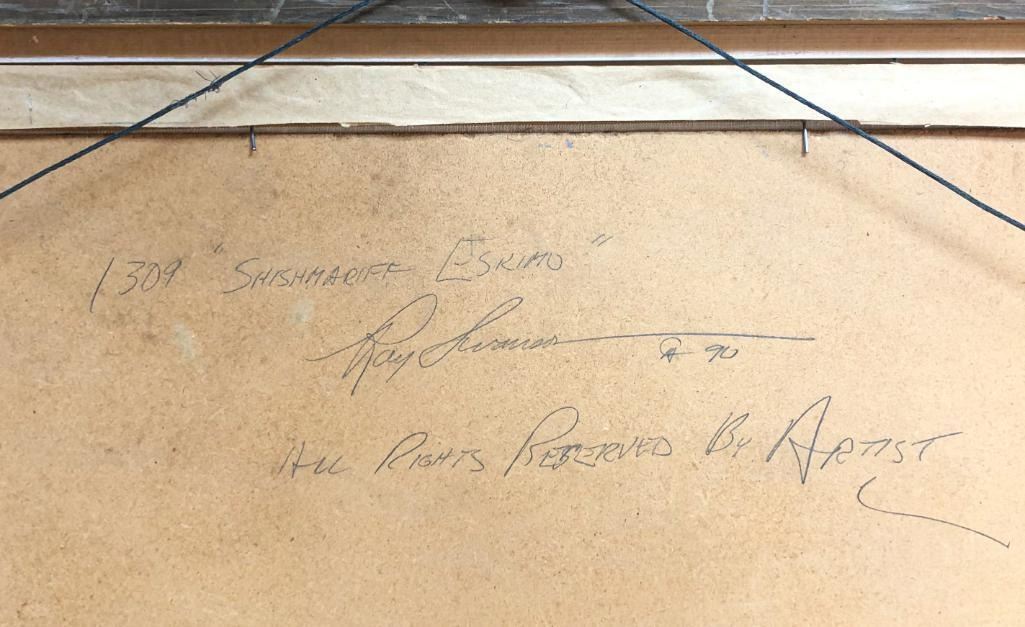 1309 "SHISHMARIFF ESKIMO"
Ray Swanson 90
ALL RIGHTS RESERVED BY ARTIST